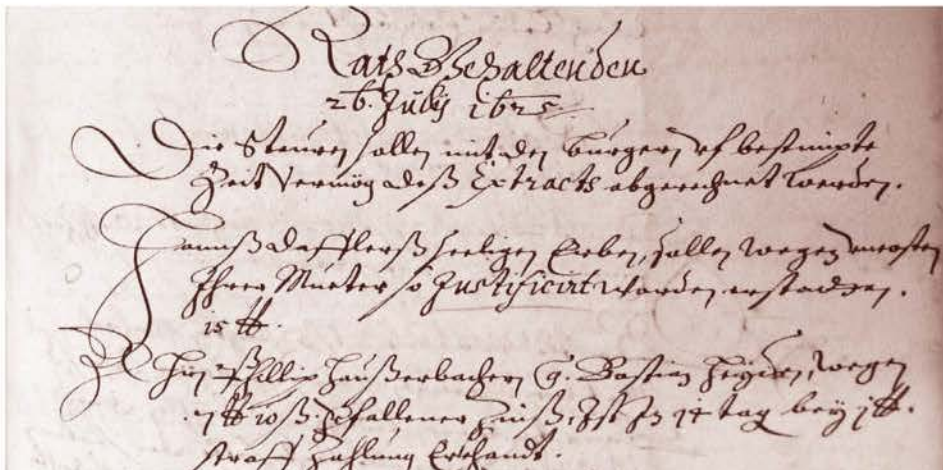 Raths Gehalten den
26. Julij 1625
Die Steuren sollen mit den burgern vf bestimpte
Zeit vermög deß Extracts abgerechnet werden.
Hannß Dafflerß seeligen Erben, sollen wegen
Ihrer Mueter so Justificirt worden erstatten.
15 ℔.
Philips Haußerbachern Bastian wegen
ß. Zinß, Ist In 14 tag bey 1 ℔.
straff Zahlung Erkhandt.